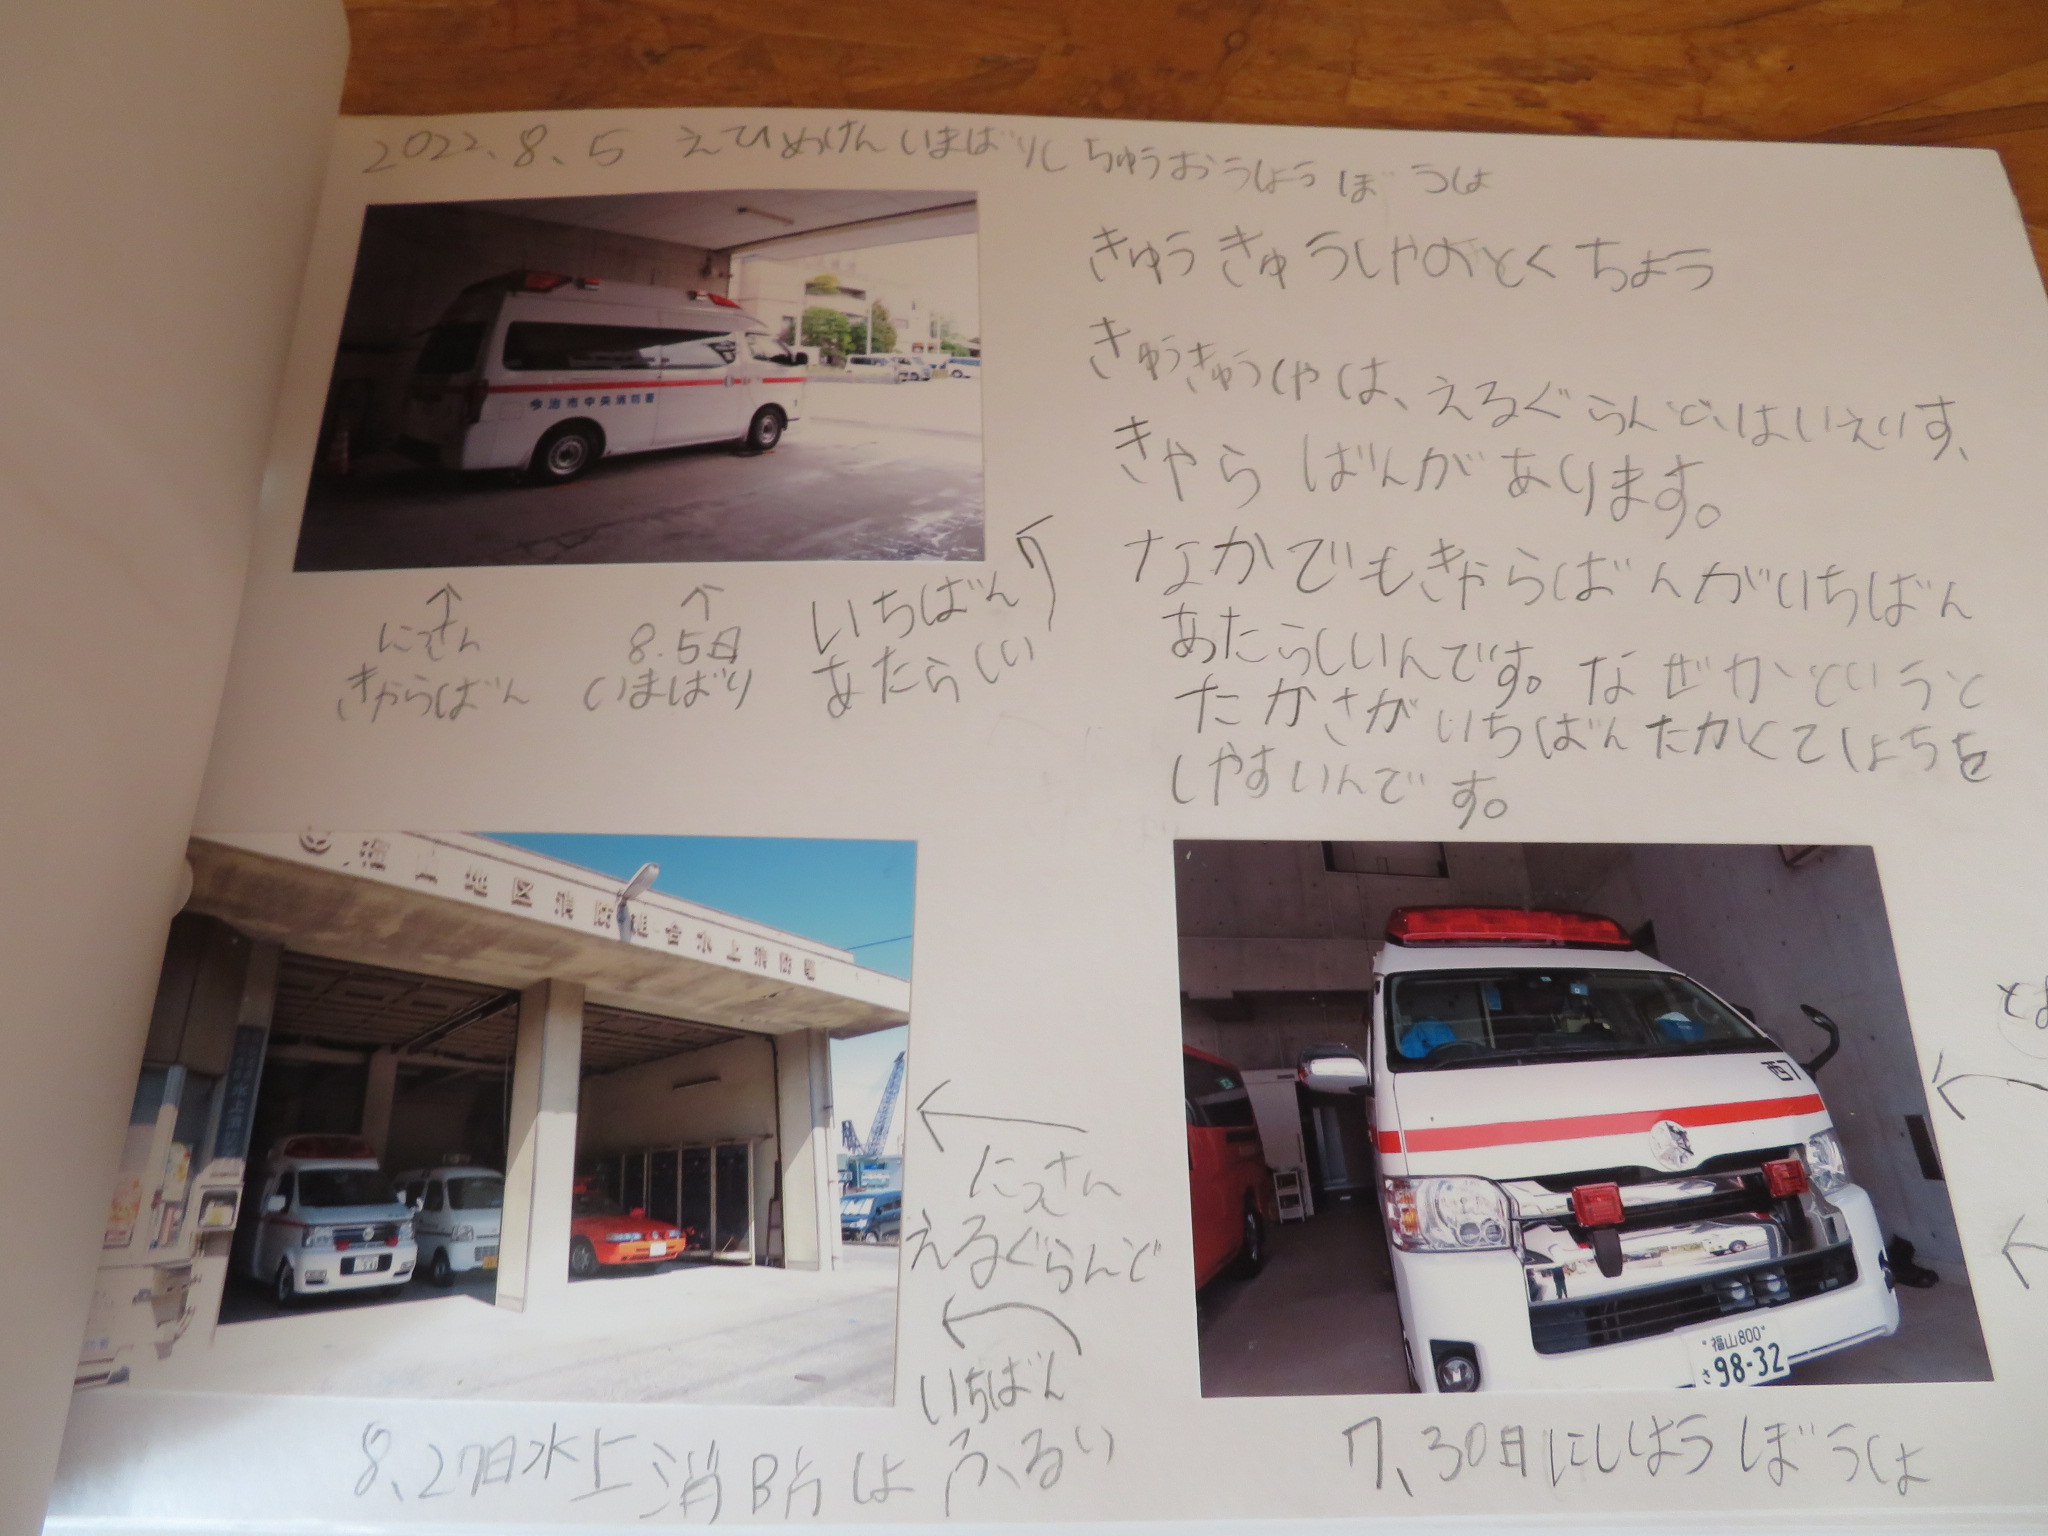 2022.8.5 えひめけんいまばりし ちゅうおうしょうぼうしょ
今治市中央消防署
きゅうきゅうしゃのとくちょう
きゅうきゅうしゃは、えるぐらんど、はいえいす、
きゃらばんがあります。
なかでもきゃらばんがいちばん
あたらしいんです。なぜかというと
たかさがいちばんたかくてしょちを
しやすいんです。
↑
にっさん
きゃらばん
↑
8.5日
いまばり
いちばん
あたらしい
地区消防組合水上消防署
←
にっさん
えるぐらんど
←
いちばん
ふるい
8、27日水上消防しょ
西1
福山800
さ 98-32
←
と
←
7、30日にししょうぼうしょ